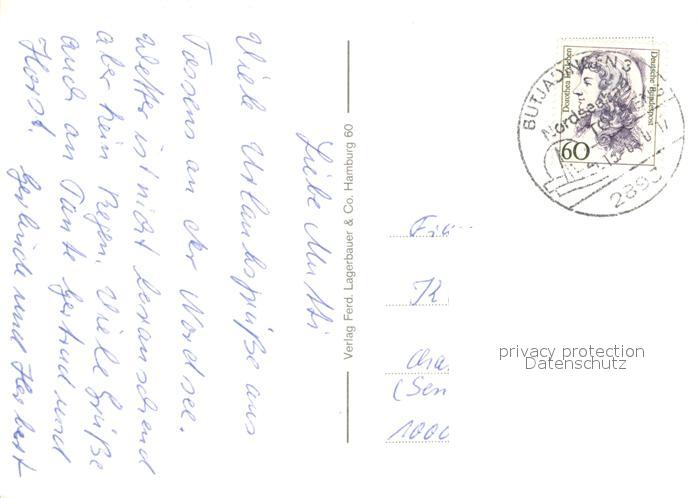 Liebe Mutti
Viele Urlaubsgrüße aus
Tossens an der Nordsee.
Wetter ist nicht berauschend
aber kein Regen. Viele Grüße
auch an Tante Gertrud und
Horst. Gerlinde und Herbert
Verlag Ferd. Lagerbauer & Co. Hamburg 60
Deutsche Bundespost
Dorothea Erxleben
60
BUTJADINGEN 3
Nordseebad
2893
K
(Sen
1000
privacy protection
Datenschutz